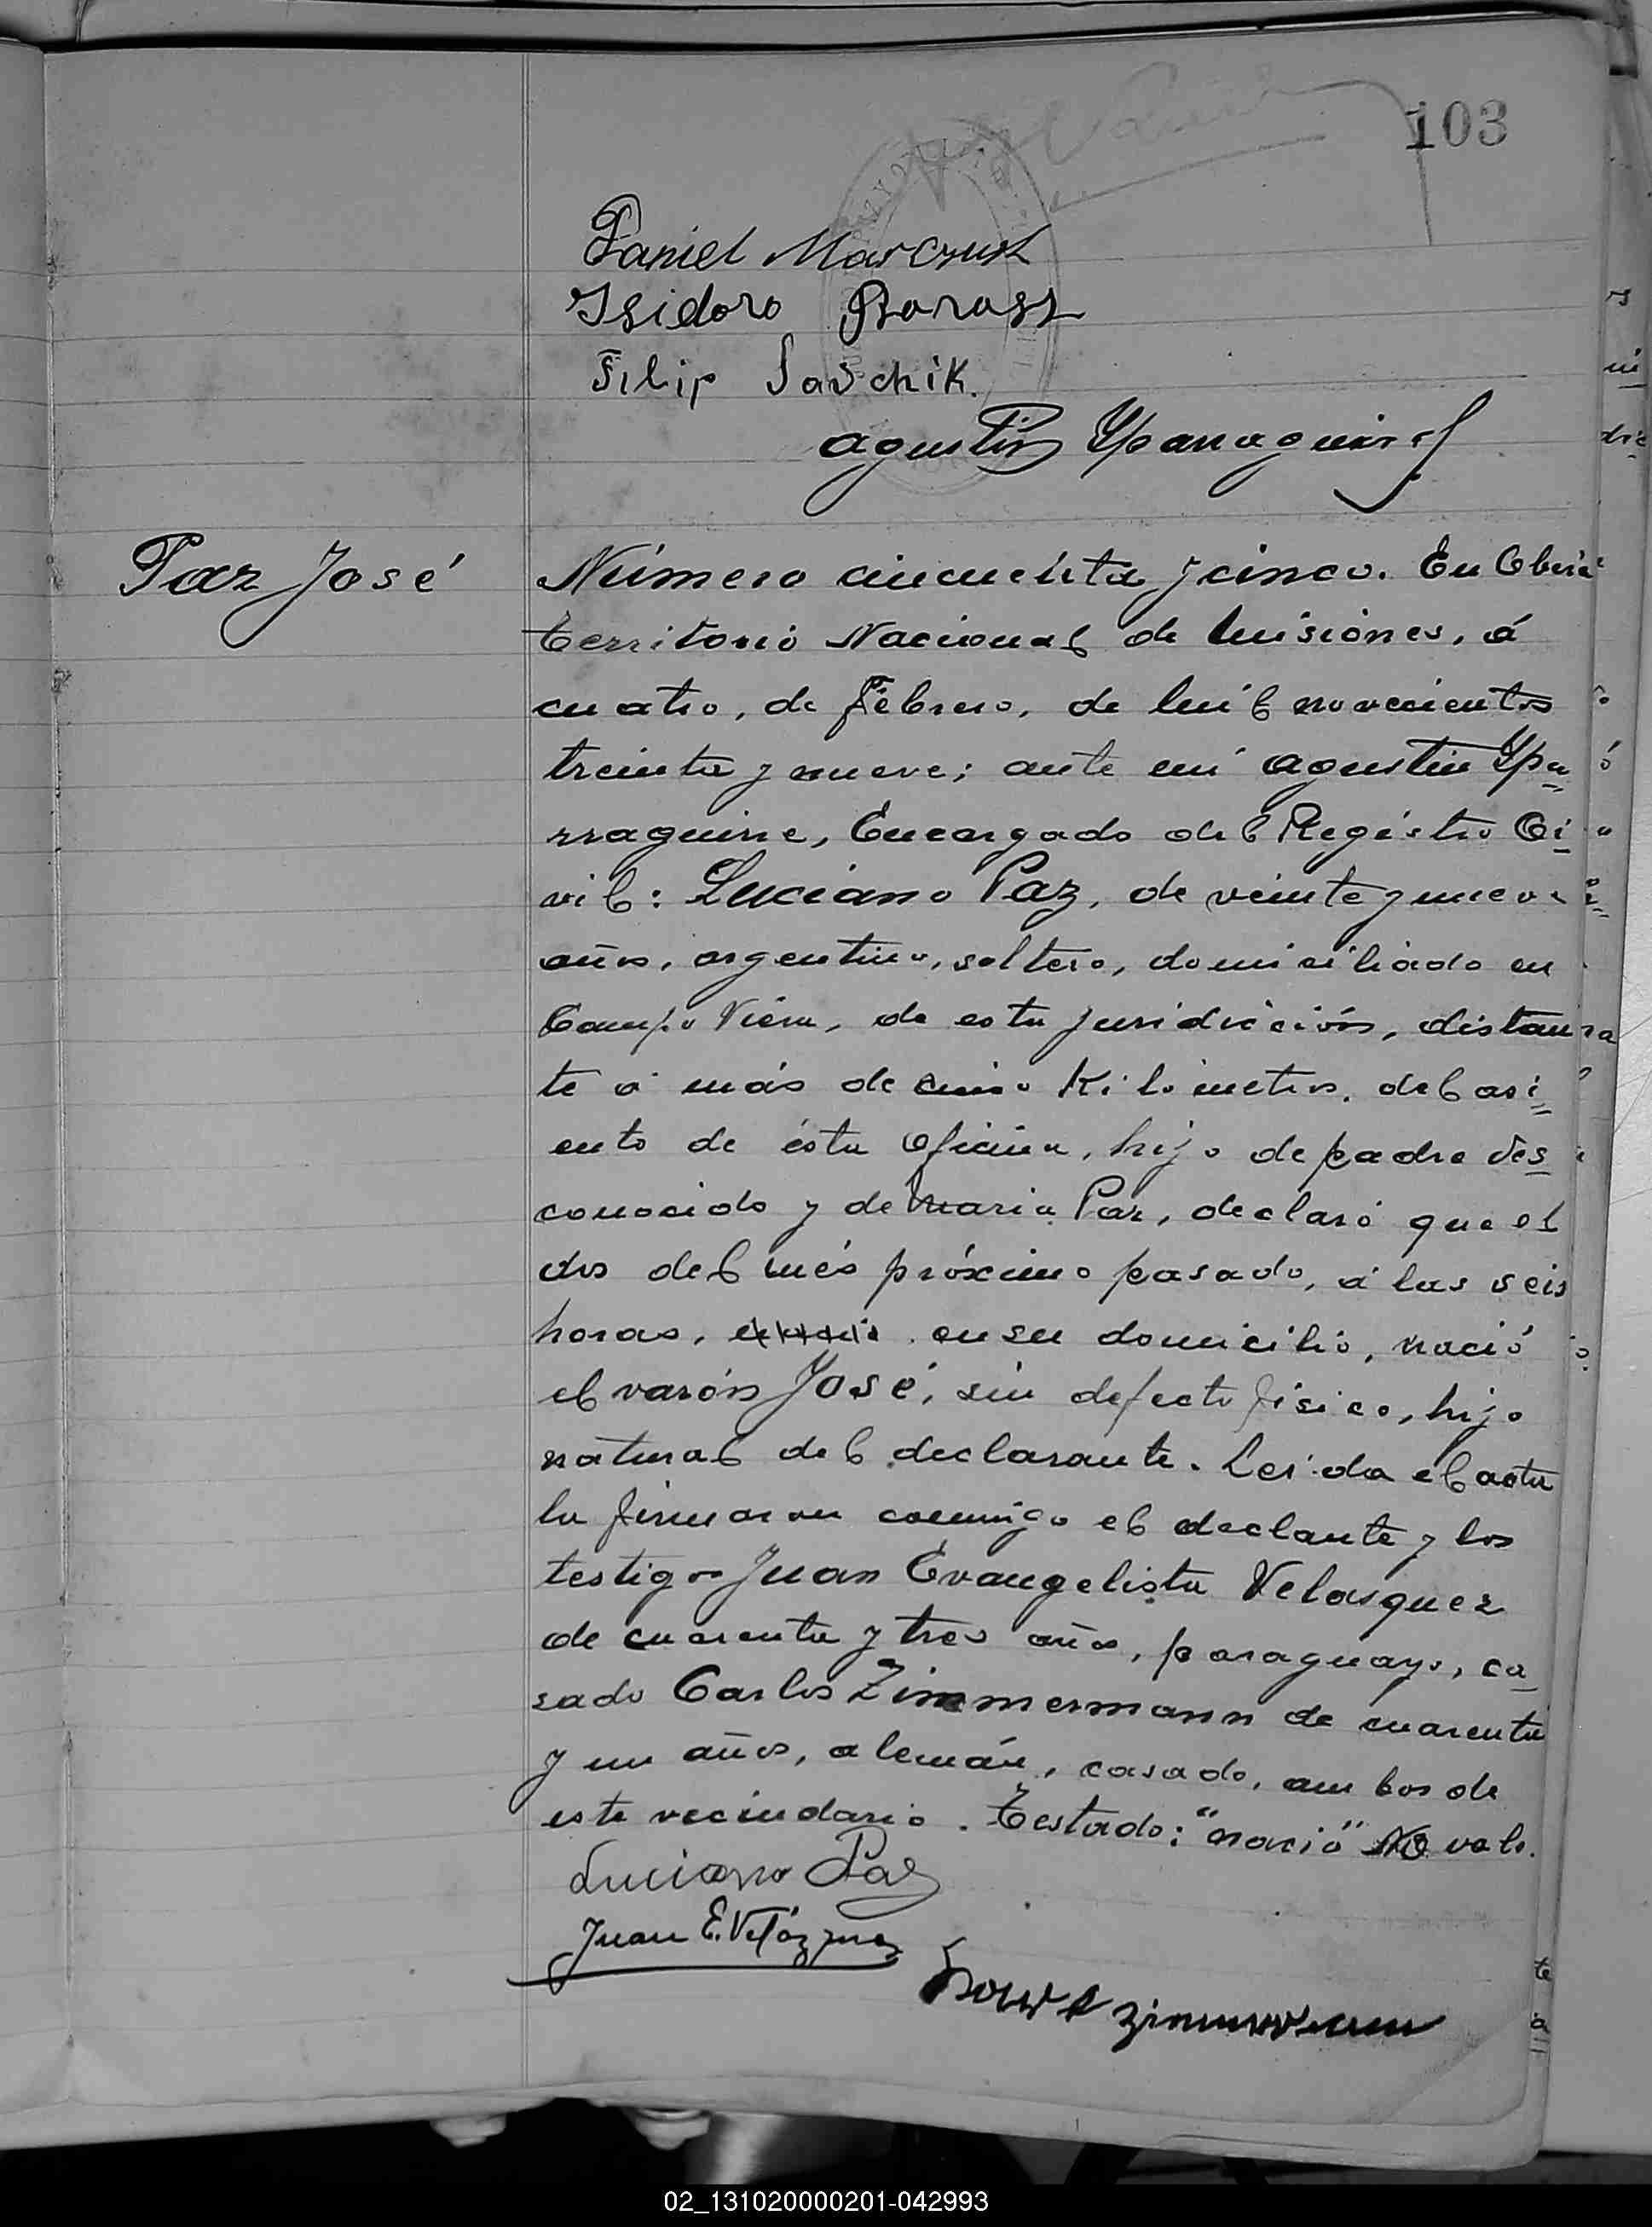 103
Daniel Marczuk
Isidoro Boross
Filip Savchik.
Agustin Yparraguirre
Paz José
Número cincuenta y cinco. En Oberá
Territorio Nacional de Misiones, á
cuatro, de Febrero, de mil novecientos
treinta y nueve; ante mi Agustin Ypa=
rraguirre, Encargado del Registro Ci=
vil: Luciano Paz, de veinte y nueve
años, argentino, soltero, domiciliado en
Campo Viera, de esta juridicción, distan
te á más de cinco Kilometros, del asi=
ento de ésta Oficina, hijo de padre des
conocido y de Maria Paz, declaró que el
dos del més próximo pasado, á las seis
horas, en su domicilio, nació
el varón José, sin defecto fisico, hijo
natural del declarante. Leida el acta
la firmaron conmigo el declante y los
testigos Juan Evangelista Velasquez
de cuarenta y tres años, paraguayo, ca
sado Carlos Zimmermann de cuarenta
y un años, alemán, casado, ambos de
este vecindario. Testado: "nació" No vale.
Luciano Paz
Juan E. Velázquez
Zimmermann
02_131020000201-042993